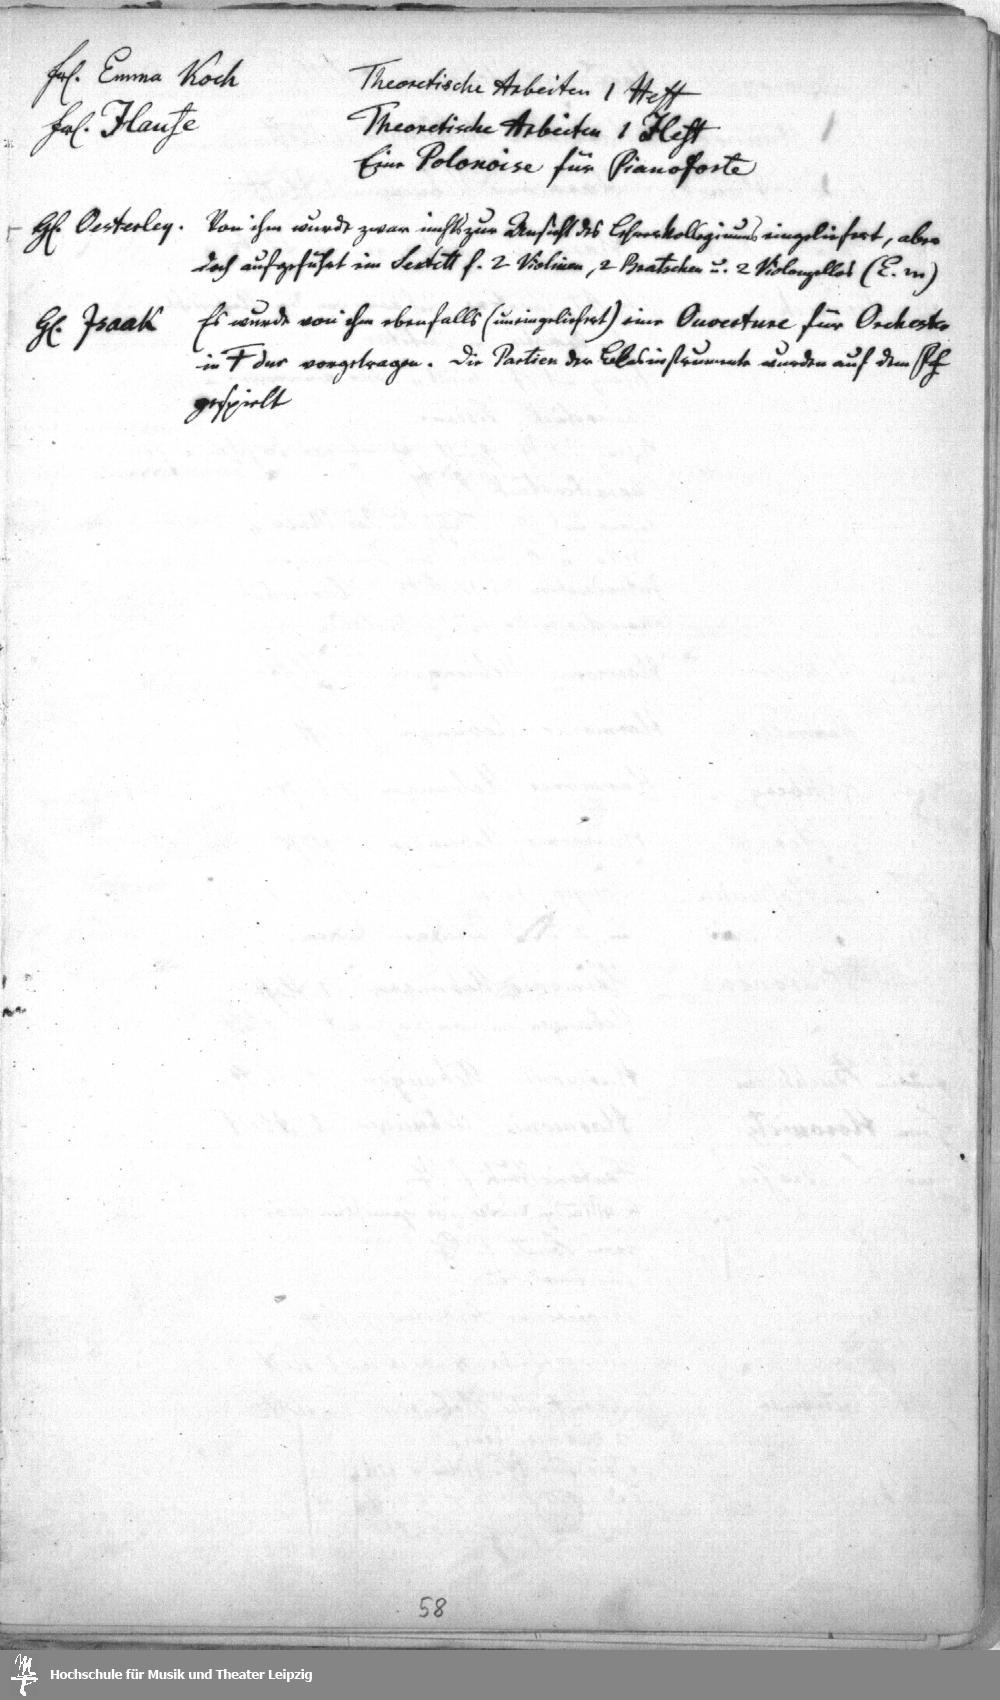 Frl. Emma Koch Theoretische Arbeiten 1 Heft
Frl. Hause Theoretische Arbeiten 1 Heft
Eine Polonoise für Pianoforte
H. Oesterley. Von ihm wurde zwar nichts zur Ansicht des Lehrerkollegiums eingeliefert, aber
doch aufgeführt ein Sextett f. 2 Violinen, 2 Bratschen u. 2 Violonzellos (E. m)
H. Isaak Es wurde von ihm ebenfalls (uneingeliefert) eine Ouverture für Orchester
in F dur vorgetragen. Die Partien der Blasinstrumente wurden auf dem Pf.
gespielt
58
Hochschule für Musik und Theater Leipzig